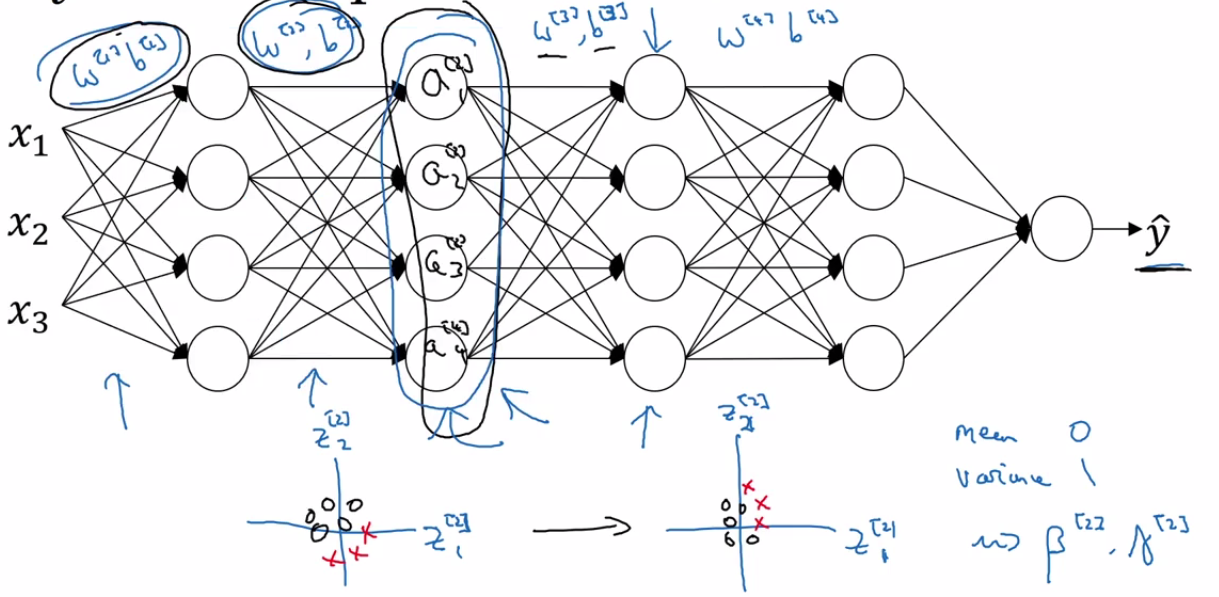 w[1] b[1] w[2], b[2] w[3], b[3] w[4] b[4]
x₁
x₂
x₃
a₁[2]
a₂[2]
a₃[2]
a₄[2]
ŷ
z₂[2]
z₁[2]
z₂[2]
z₁[2]
mean 0
variance 1
β[2], γ[2]